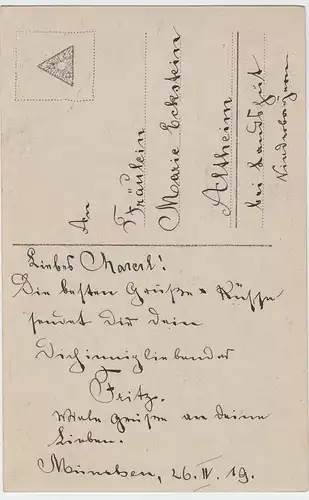 An
Fräulein
Marie Eckstein
Altheim
bei Landshut
Niederbayern
Liebes Marerl!
Die besten Grüße & Küsse
sendet Dir dein
Dichinnigliebender
Fritz.
Viele Grüße an deine
Lieben.
München, 26. IV. 19.